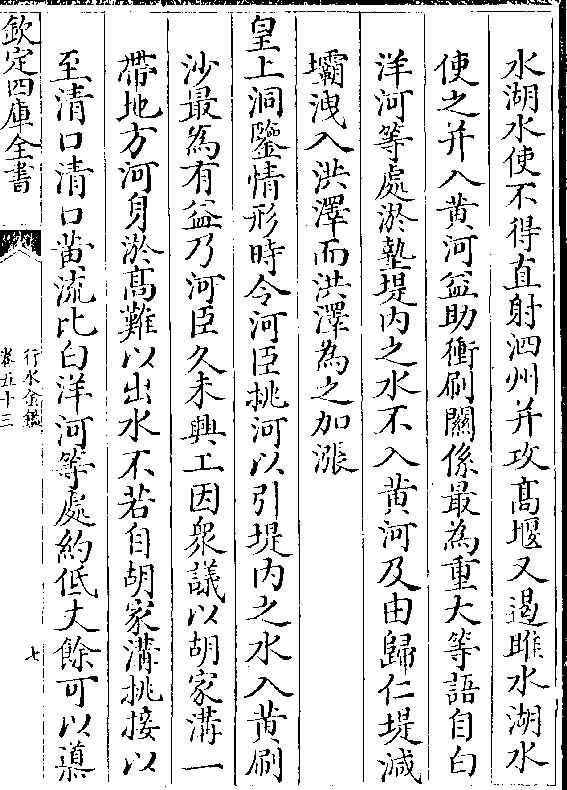 水湖水使不得直射泗州并攻髙堰又遏睢水湖水
使之并入黄河益助衝刷關係最為重大等語自白
洋河等處淤墊堤内之水不入黄河及由歸仁堤減
壩洩入洪澤而洪澤為之加漲
皇上洞鑒情形時令河臣挑河以引堤内之水入黄刷
沙最為有益乃河臣久未興工因衆議以胡家溝一
帶地方河身淤髙難以出水不若自胡家溝挑接以
至清口清口黄流比白洋河等處約低丈餘可以導
欽定四庫全書
行水金鑑
卷五十三
七